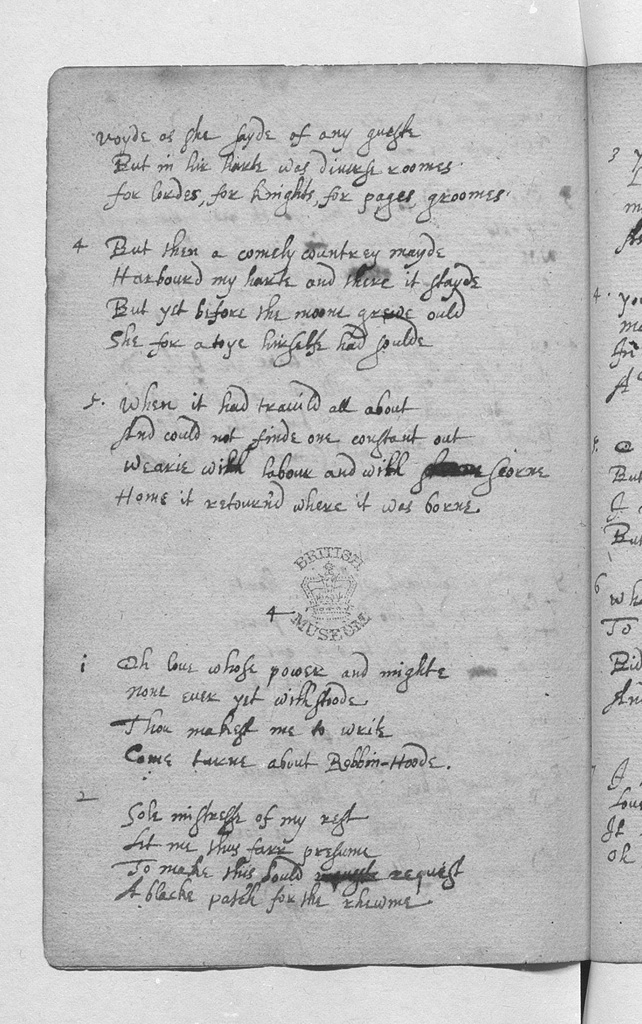 voyde as she sayde of any gueste
But in hir harte was diuerse roomes
for Lordes, for knights, for pages, groomes.
4 But then a comely countrey mayde
Harbourd my harte and there it stayde
But yet before the moone grewe ould
She for a toye himselfe had soulde
5. When it had trauild all about
And could not finde one constant out
Wearie with labour and with scorne
Home it retournd where it was borne
BRITISH MUSEUM
4
1 Oh loue whose power and mighte
none euer yet withstoode
Thou makest me to write
Come turne about Robbin-Hoode.
2
Sole mistresse of my rest
Let me thus farr presume
To make this bould request
A blacke patch for the rhewme
3 y
m
4. you
ma
In
A
5. O
But
I
But
6 Whe
To
Bid
And
7 I
Loue
If
Oh